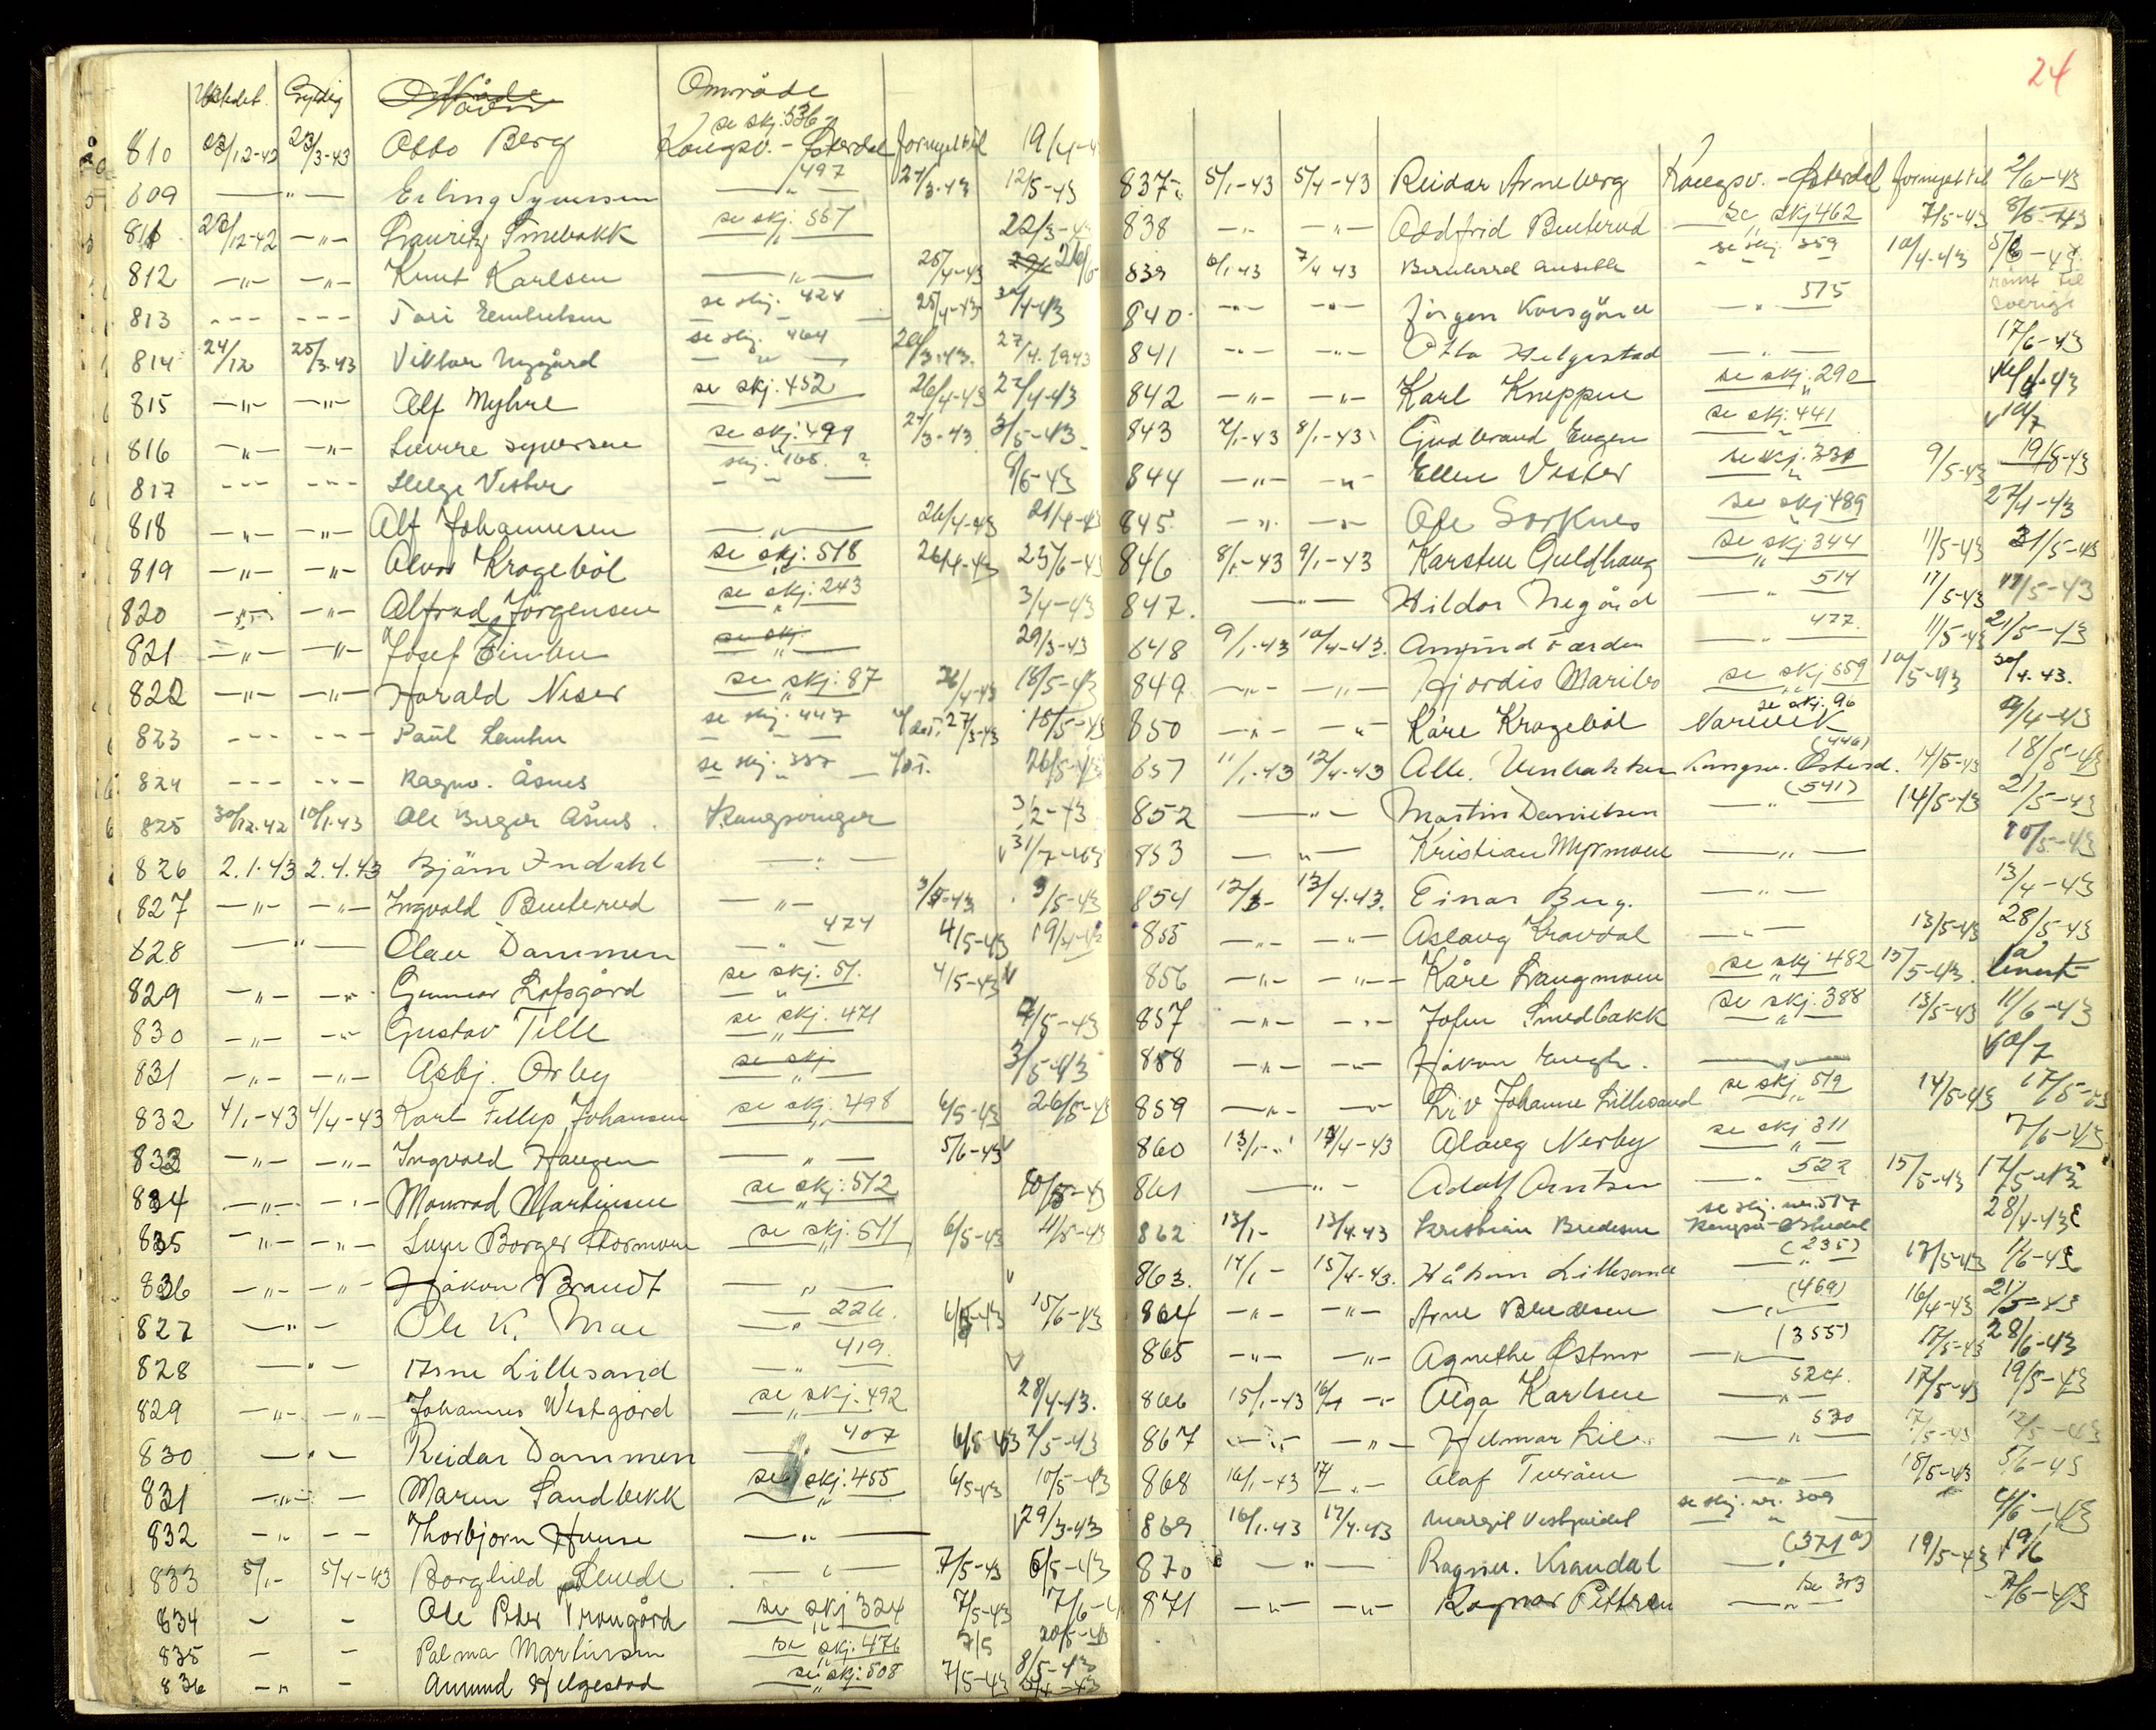 Utstedt. Gyldig Område
810 23/12-42 23/3-43 Otto Berg se skj. 536 Kongsv. - Østerdal fornyet til 19/4-4
809 — " — Erling Syversen — " — 497 24/3-43 12/5-43
811 23/12-42 — " — Lauritz Smebakk se skj. 557 22/3-43
812 — " — — " — Knut Karlsen — " — 25/4-43 26/5
813 - - - - - - Tori se skj. 424 25/4-43 30/4-43
814 24/12 25/3-43 Viktor Nygård se skj. 464 20/3-43. 27/4. 1943
815 — " — — " — Alf Myhre se skj. 452 26/4-43 27/4-43
816 — " — — " — Sverre Syversen se skj. 499 24/3-43 3/5-43
817 - - - - - - Helge Vester skj. 165. ? 8/6-43
818 — " — — " — Alf Johannesen — " — 26/4-43 21/4-43
819 — " — — " — Alvar Krogeböl se skj. 518 26/4-43 25/6-43
820 — " — — " — Alfred Jörgensen se skj. 243 3/4-43
821 — " — — " — Josef Eimbu se skj. 29/3-43
822 — " — — " — Harald Neser se skj. 87 26/4-43 18/5-43
823 - - - - - - Paul se skj. 447 27/3-43 15/5-43
824 - - - - - - Ragnv. Åsnes se skj. 387 26/5-43
825 30/12.42 10/1.43 Ole Birger Åsnes. Kongsvinger 3/2-43
826 2.1.43 2.4.43 Bjärn Indahl — " — v 31/7-43
827 — " — — " — Ingvald Buterud — " — 3/5-43 3/5-43
828 — " — Olav Dammen — " — 474 4/5-43 19/4-43
829 — " — — " — Gunnar Lofsgård se skj. 51. 4/5-43 v
830 — " — — " — Gustav Tille se skj. 471 7/5-43
831 — " — — " — Asbj. Orby se skj 3/5-43
832 4/1-43 4/4-43 Karl Fillip Johansen se skj. 498 6/5-43 26/5-43
833 — " — — " — Ingvald Haugen — " — 5/6-43 v
834 — " — — " — Monrad Martinsen se skj. 512 10/5-43
835 — " — — " — Borger Stormoen se skj. 511 6/5-43 4/5-43
836 — " — — " — Håkon Brandt — " — v
827 — " — Ole K. Moe — " — 226. 6/5-43 15/6-43
828 — " — Arne Lillesand — " — 419. v
829 — " — — " — Johannes Westgård se skj. 492 28/4-43.
830 — " — Reidar Dammen — " — 407 6/5-43 7/5-43
831 — " — Maren Sandbekk se skj. 455 6/5-43 10/5-43
832 — " — — Thorbjørn Huuse — " — v 29/3-43
833 5/1- 5/4-43 Borghild Lunde — " — 7/5-43 6/5-43
834 — — Ole Peder Trongård se skj 324 7/5-43 7/6-4
835 — — Palma Martinsen se skj. 476 7/5 20/5-43
836 — " — Amund Helgestad se skj. 508 7/5-43 8/5-43
24
837. 5/1-43 5/4-43 Reidar Arneberg Kongsv. - Østerdal fornyet til 2/6-43
838 — " — — " — Oddfrid Buterud se skj 462 7/5-43 8/5-43
839 6/1-43 7/4 43 Bernhard se skj. 359 10/4-43 5/6-43
840 — " — — " — Jörgen Korsgård — " — 515 römt til Sverige
841 — " — — " — Otto Helgestad — " — 17/6-43
842 — " — — " — Karl Kneppen se skj. 290
843 7/1-43 8/1-43 Gudbrand Engen se skj. 441 v 10/7
844 — " — — " — Ellen Vester se skj. 331 9/5-43 19/5-43
845 — " — — " — Ole Sorknes se skj 489 27/4-43
846 8/1-43 9/1-43 Karsten Guldhaug se skj 344 11/5-43 31/5-43
847. — " — Hildor Negård — " — 514 11/5-43 11/5-43
848 9/1-43 10/4-43. Amund Færden — " — 477. 11/5-43 21/5-43
849 — " — — " — Hjördis Maribo se skj 559 10/5-43 30/4.43.
850 — " — — " — Kåre Krogeböl Narvik se skj. 96 9/4-43
851 11/1-43 12/4-43 Kongsv. Østerd. (446) 14/5-43 18/5-43
852 — " — Martin Danielsen — " — (541) 14/5-43 21/5-43
853 — " — Kristian Myrmoen — " — 10/5-43
854 12/1- 13/4-43. Einar Berg. — " — 13/4-43
855 — " — — " — Aslaug Kravdal — " — 13/5-43 28/5-43
856 — " — — " — Kåre Langmoen se skj 482 13/5-43.
857 — " — — " — John Smedbakk se skj. 388 13/5-43 11/6-43
858 — " — — " — Håkon Engh. — " — v 10/7
859 — " — — " — Liv Johanne Lillesand se skj 519 14/5-43 17/5-43
860 13/1- " 14/4-43 Aslaug Nerby se skj 311 7/6-43
861 — " — Adolf Arntsen — " — 522 15/5-43 17/5-43
862 13/1- 13/4.43 Kristian Bredesen se skj. nr. 517 Kongsv-Østerdal 28/4-43
863. 14/1- 15/4-43. Håkon Lillesand — " — (235) 17/5-43 1/6-43
864 — " — — " — Arne Bredesen — " — (469) 16/4-43 21/5-43
865 — " — — " — Agnethe Østmo — " — (355) 17/5-43 28/6-43
866 15/1-43 16/4 — " — Olga Karlsen — " — 524. 17/5-43 19/5-43
867 — " — — " — Helmar Lie — " — 530 17/5-43 12/5-43
868 16/1-43 17/ - " - Olaf — " — 18/5-43 5/6-43
869 16/1.43 17/4.43 Margit se skj. nr. 309 4/6-43
870 — " — Ragnv. Kravdal — " — (371a) 19/5-43 19/6
871 — " — — " — Ragnar Pettersen — " — se 313 7/6-43